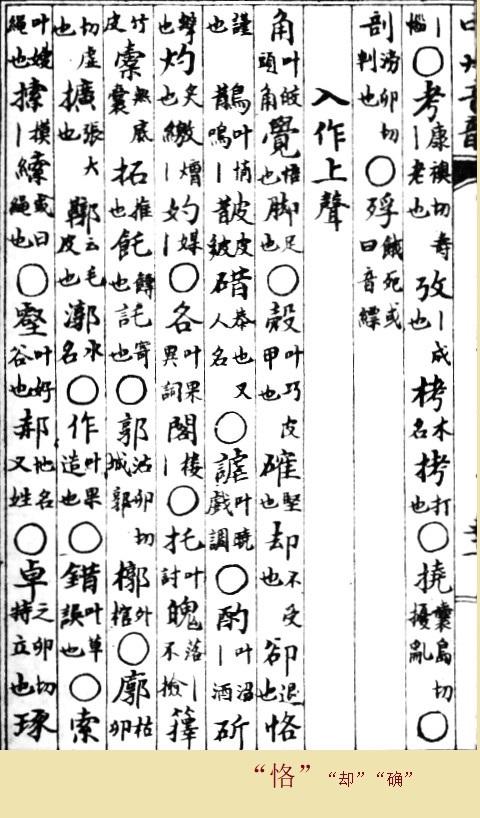 ｜惱○考康襖切壽｜老也攷｜成也栲木名拷打也○撓囊島切擾亂○
剖滂卯切判也○殍餓死或曰音縹
入作上聲
角叶皎頭角覺悟也脚足也○殼叶巧皮甲也確堅也却不受也卻退也恪
謹也鵲叶悄皵皮皴碏恭也又人名○謔叶曉戲調○酌叶沼｜酒斫
擊也灼炙也繳｜熷妁媒｜○各叶果異詞閣樓｜○托叶討魄落｜不撿籜
竹皮橐無底囊拓推也飥餺也託寄也○郭沽卯切城郭槨外棺○廓枯卯
切虛也擴張大也鞹去毛皮也漷水名○作叶果造也○錯叶草誤也○索
叶嫂繩也摸｜縤或曰繩也○壑叶好谷也郝地名又姓○卓之卯切特立也琢
“恪”“却”“确”